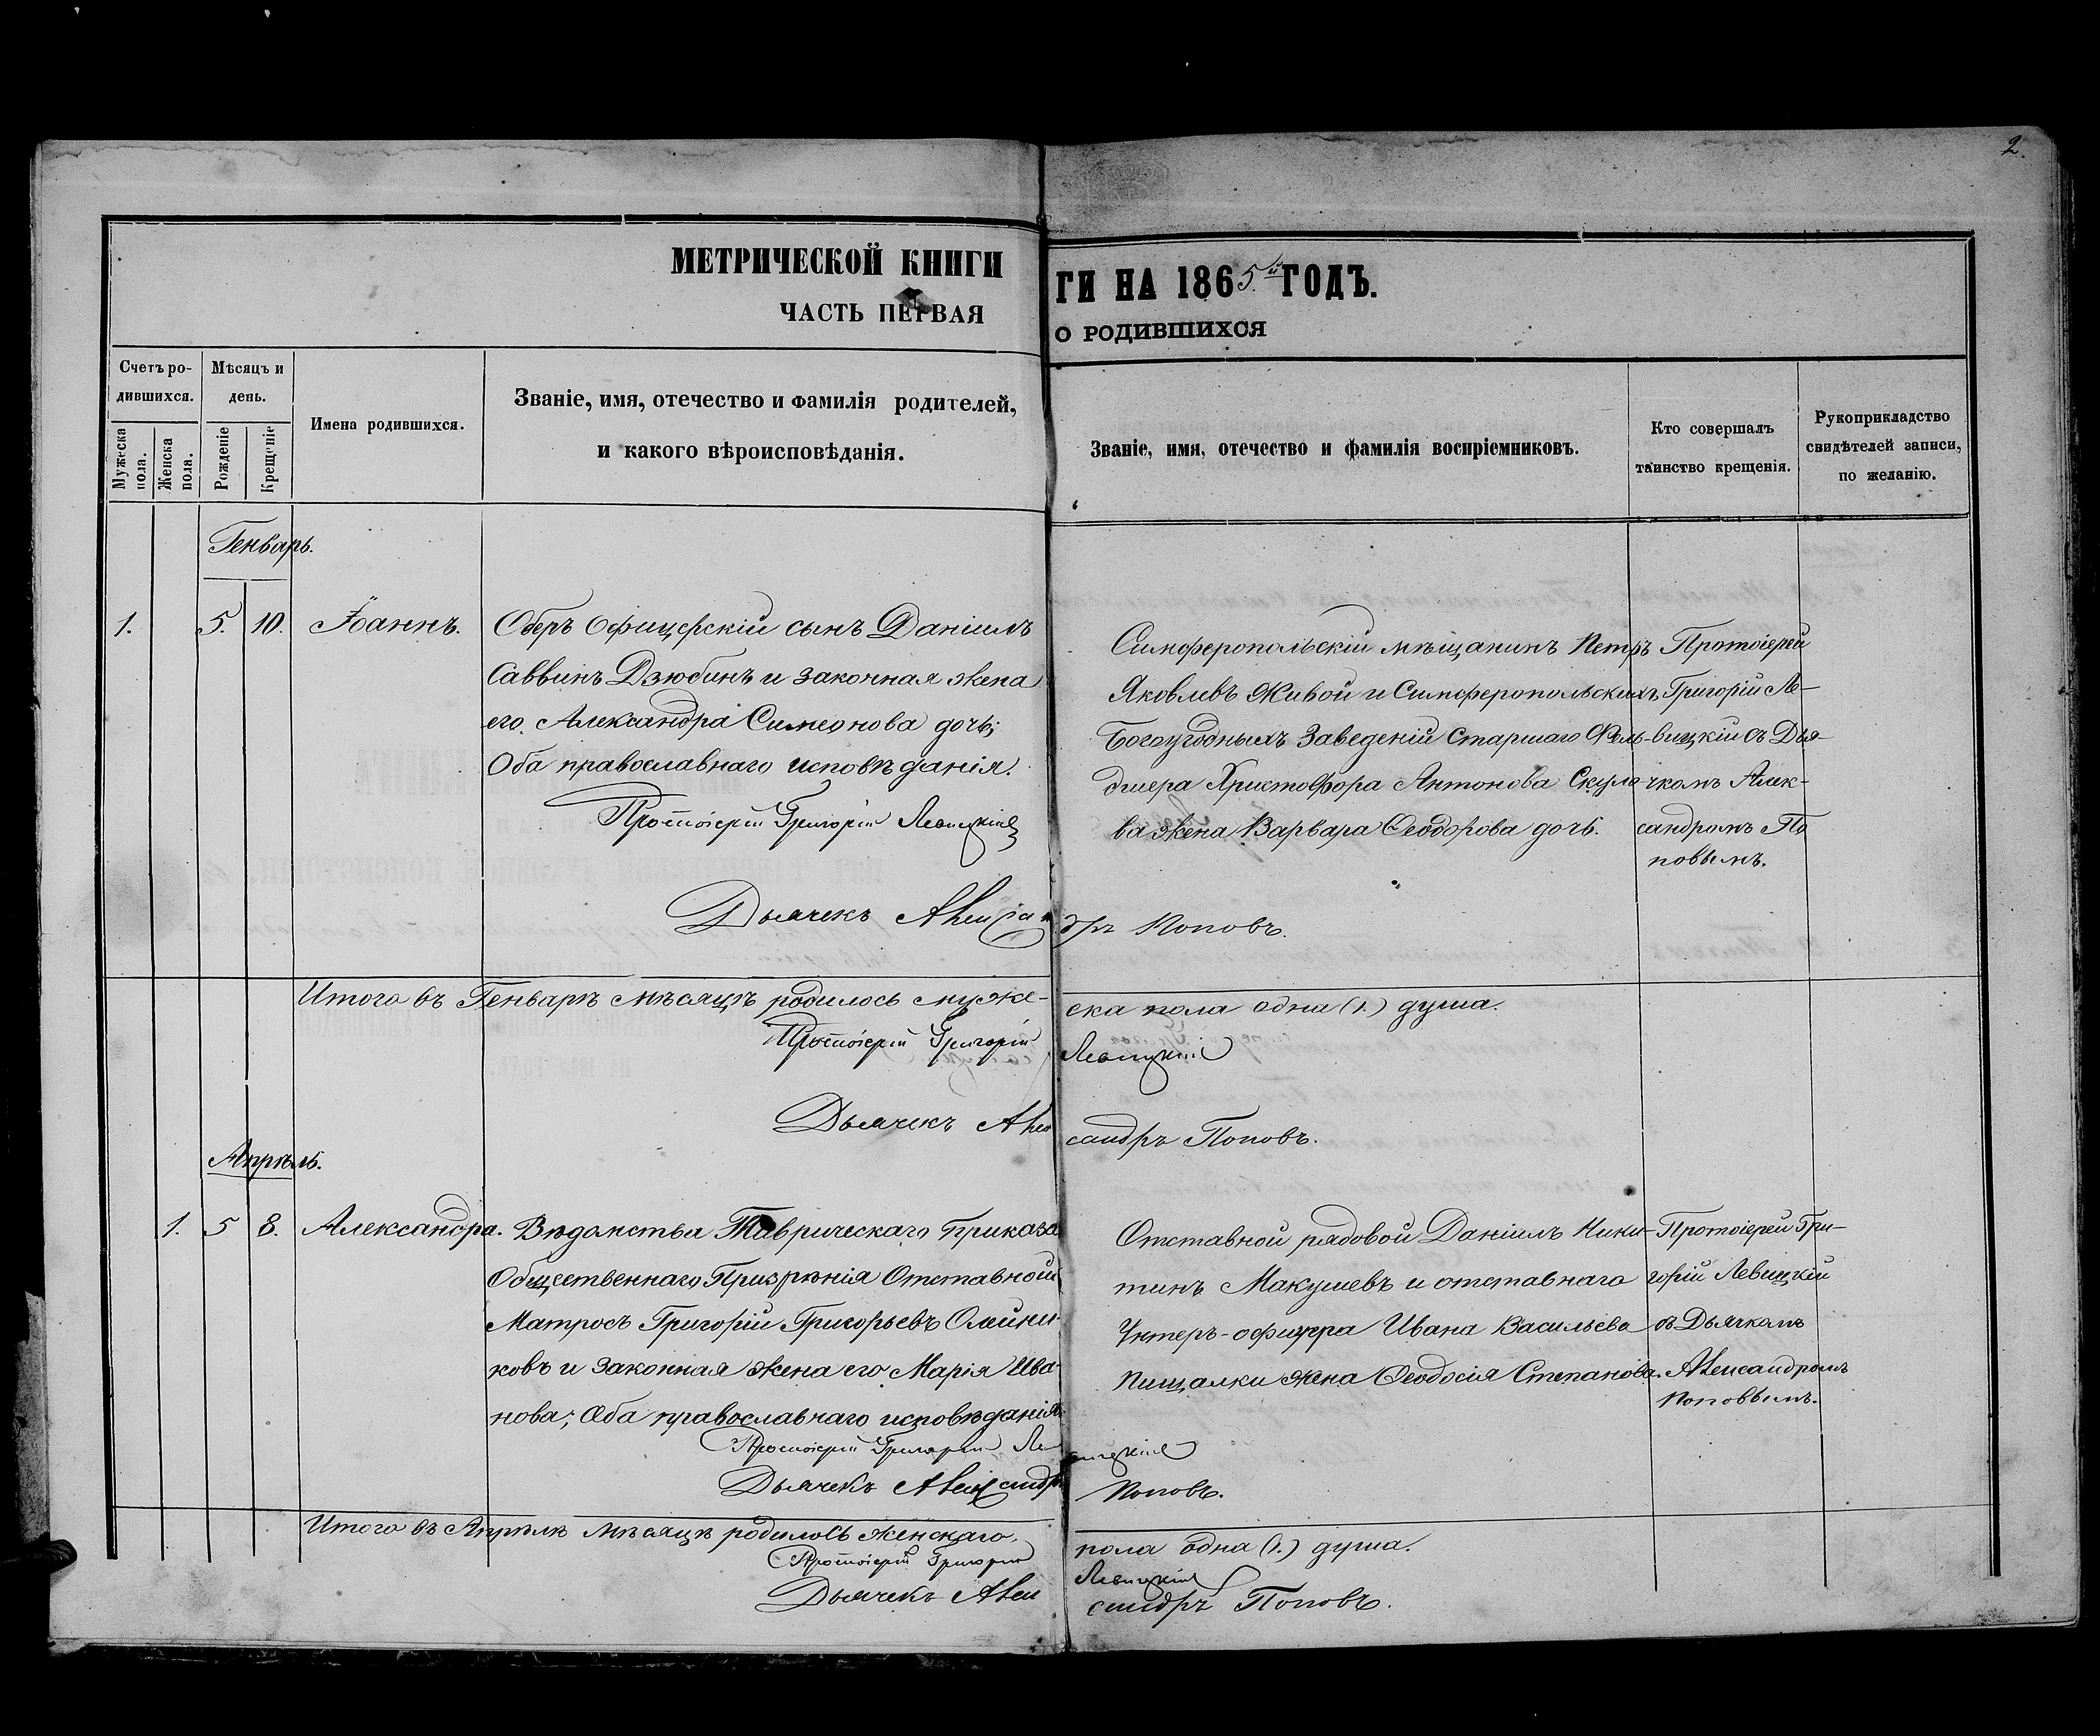 2.
МЕТРИЧЕСКОЙ КНИГИ
ЧАСТЬ ПЕРВАЯ
ГИ НА 1865й ГОДЪ.
О РОДИВШИХСЯ
Счетъ ро-
дившихся.
Мужеска пола.
Женска пола.
Мѣсяцъ и
день.
Рожденіе
Крещеніе
Имена родившихся.
Званіе, имя, отечество и фамилія родителей,
и какого вѣроисповѣданія.
Званіе, имя, отечество и фамилія воспріемниковъ.
Кто совершалъ
таинство крещенія.
Рукоприкладство
свидѣтелей записи,
по желанію.
Генварь.
1. 5. 10. Іоаннъ.
Оберъ Офицерскій сынъ Даніилъ
Саввинъ Дзюбинъ и законная жена
его Александра Симеонова дочь;
Оба православнаго исповѣданія.
Протоіерей Григорій Левицкій
Симферопольскій мѣщанинъ Петръ
Яковлевъ Живой и Симферопольскихъ
Богоугодныхъ Заведеній Старшаго Фель-
дшера Христофора Антонова Скуло-
ва жена Варвара Ѳеодорова дочь.
Протоіерей
Григорій Ле-
вицкій съ Дья-
чкомъ Алек-
сандромъ По
повымъ.
Дьячекъ Александръ Поповъ.
Итого въ Генварѣ мѣсяцѣ родилось муже-
ска пола одна (1.) душа.
Протоіерей Григорій Левицкій
Дьячекъ Александръ Поповъ.
Апрѣль.
1. 5 8. Александра.
Вѣдомства Таврическаго Приказа
Общественнаго Призрѣнія Отставной
Матросъ Григорій Григорьевъ Олейни-
ковъ и законная жена его Марія Ива-
нова; Оба православнаго исповѣданія.
Отставной рядовой Даніилъ Ники-
тинъ Макушевъ и отставнаго
Унтеръ-офицера Ивана Васильева
Пищалки жена Ѳеодосія Степанова.
Протоіерей Гри-
горій Левицкій
съ Дьячкомъ
Александромъ
Поповымъ.
Протоіерей Григорій Левицкій
Дьячекъ Александръ Поповъ.
Итого въ Апрѣлѣ мѣсяцѣ родилось женскаго
пола одна (1.) душа.
Протоіерей Григорій Левицкій
Дьячекъ Александръ Поповъ.